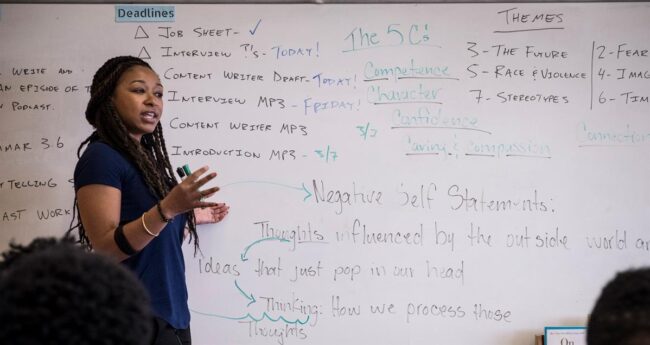 Deadlines
△ JOB SHEET- ✓
△ INTERVIEW ?'s - TODAY!
CONTENT WRITER DRAFT- TODAY!
INTERVIEW MP3 - FRIDAY!
CONTENT WRITER MP3 3/7
INTRODUCTION MP3 - 3/7
WRITE AND
AN EPISODE OF
PODCAST.
3.6
TELLING
WORK
The 5 C's
Competence
Character
Confidence
Caring & compassion
Connection
THEMES
3-THE FUTURE
5-RACE & VIOLENCE
7-STEREOTYPES
2-FEAR
4-IMAG
6-TIM
Negative Self Statements:
Thoughts influenced by the outside world
Ideas that just pop in our head
Thinking: How we process those
Thoughts
On